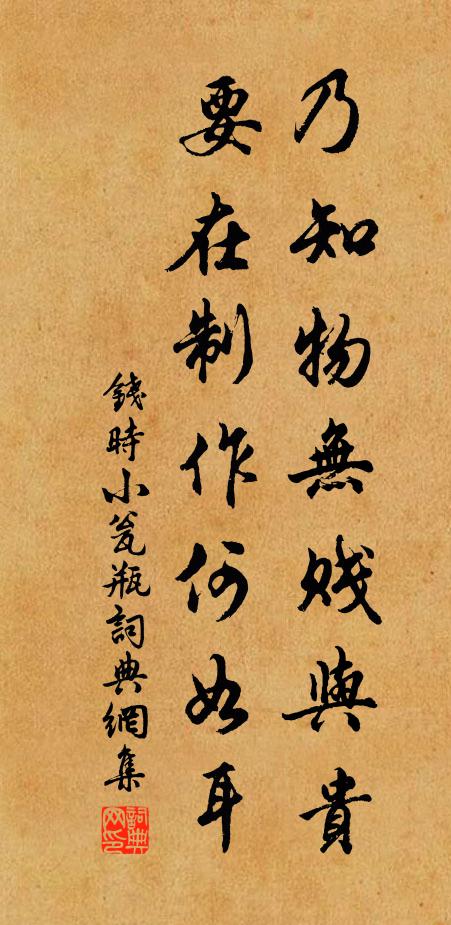 乃知物無賤與貴
要在制作何如耳
錢時小瓮瓶詞典網集
詞典网印